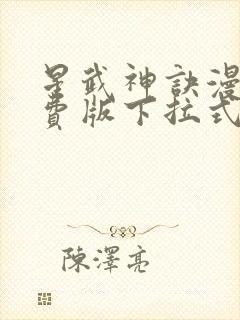 星武神訣漫
費版下拉式
陳澤亮